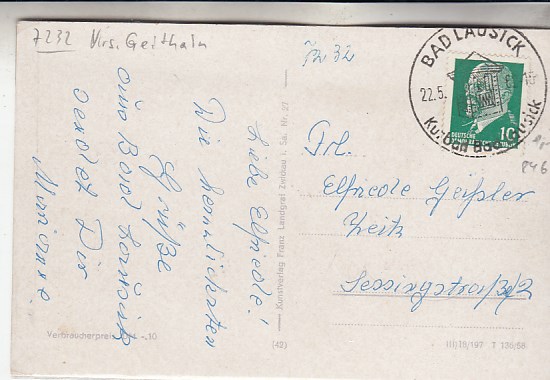 7232 Krs. Geithain
BAD LAUSICK
22.5.
10
DEUTSCHE
10
Kurbad Bad Lausick
846
Liebe Elfriede!
Die herzlichsten
Grüße
aus Bad Lausick
sendet Dir
Marianne
Kunstverlag Franz Landgraf Zwickau i. Sa. Nr. 27
Frl.
Elfriede Geißler
Zeitz
Lessingstraße
Verbraucherpreis
-.10
(42)
III/18/197 T 136/58